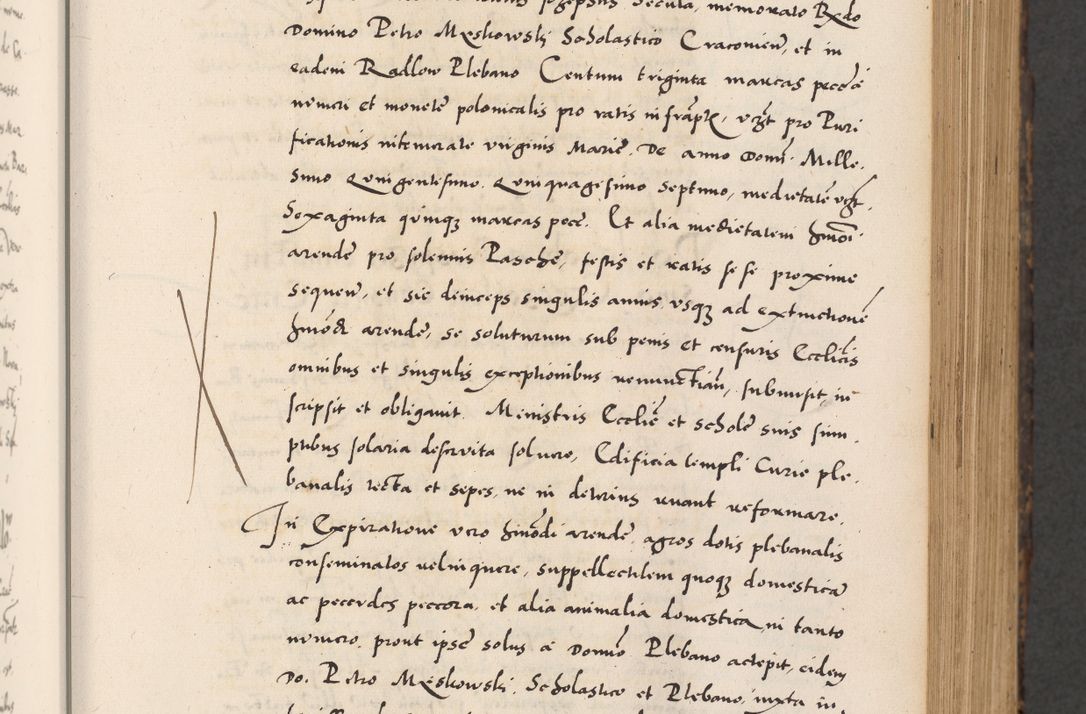 secuta, memorato Rdo
Domino Petro Męskowski Scholastico Cracovien̄, et in
eadem Radlow Plebano Centum triginta marcas pecc̄e
numeri et monetę polonicalis pro ratis infraptꝫ, vcꝫt pro Puri
ficationis intemerate virginis Marię. De anno Domi. Mille.
simo Quingentesimo. Quinquagesimo septimo, medietatē vcꝫt.
Sexaginta quinqꝫ marcas pecc̄. Et alia medietatem hmōi
arendę pro solemnis Paschę, festis et ratis se se proxime
sequen̄, et sic deinceps singulis annis, vsqꝫ ad extinctionē
hmōdi arendę, se soluturum sub penis et censuris Eccliċis
omnibus et singulis exceptionibus renunctian̄, submisit, in
scripsit et obligauit. Ministris Eccliē et scholę suis sum.
ptibus solaria deseruita soluere, Edificia templi Curie ple.
banalis tecta et sepes, ne in deterius ruant reformare.
In Expiratione vero hmōdi arendę, agros dotis plebanalis
conseminatos relinquere, suppellectilem quoqꝫ domesticā
ac pecudes peccora, et alia animalia domestica, in tanto
numero, prout ipse solus a Domno Plebano accepit, eidem
Do. Petro Męskowski, Scholastico et Plebano, iuxta in